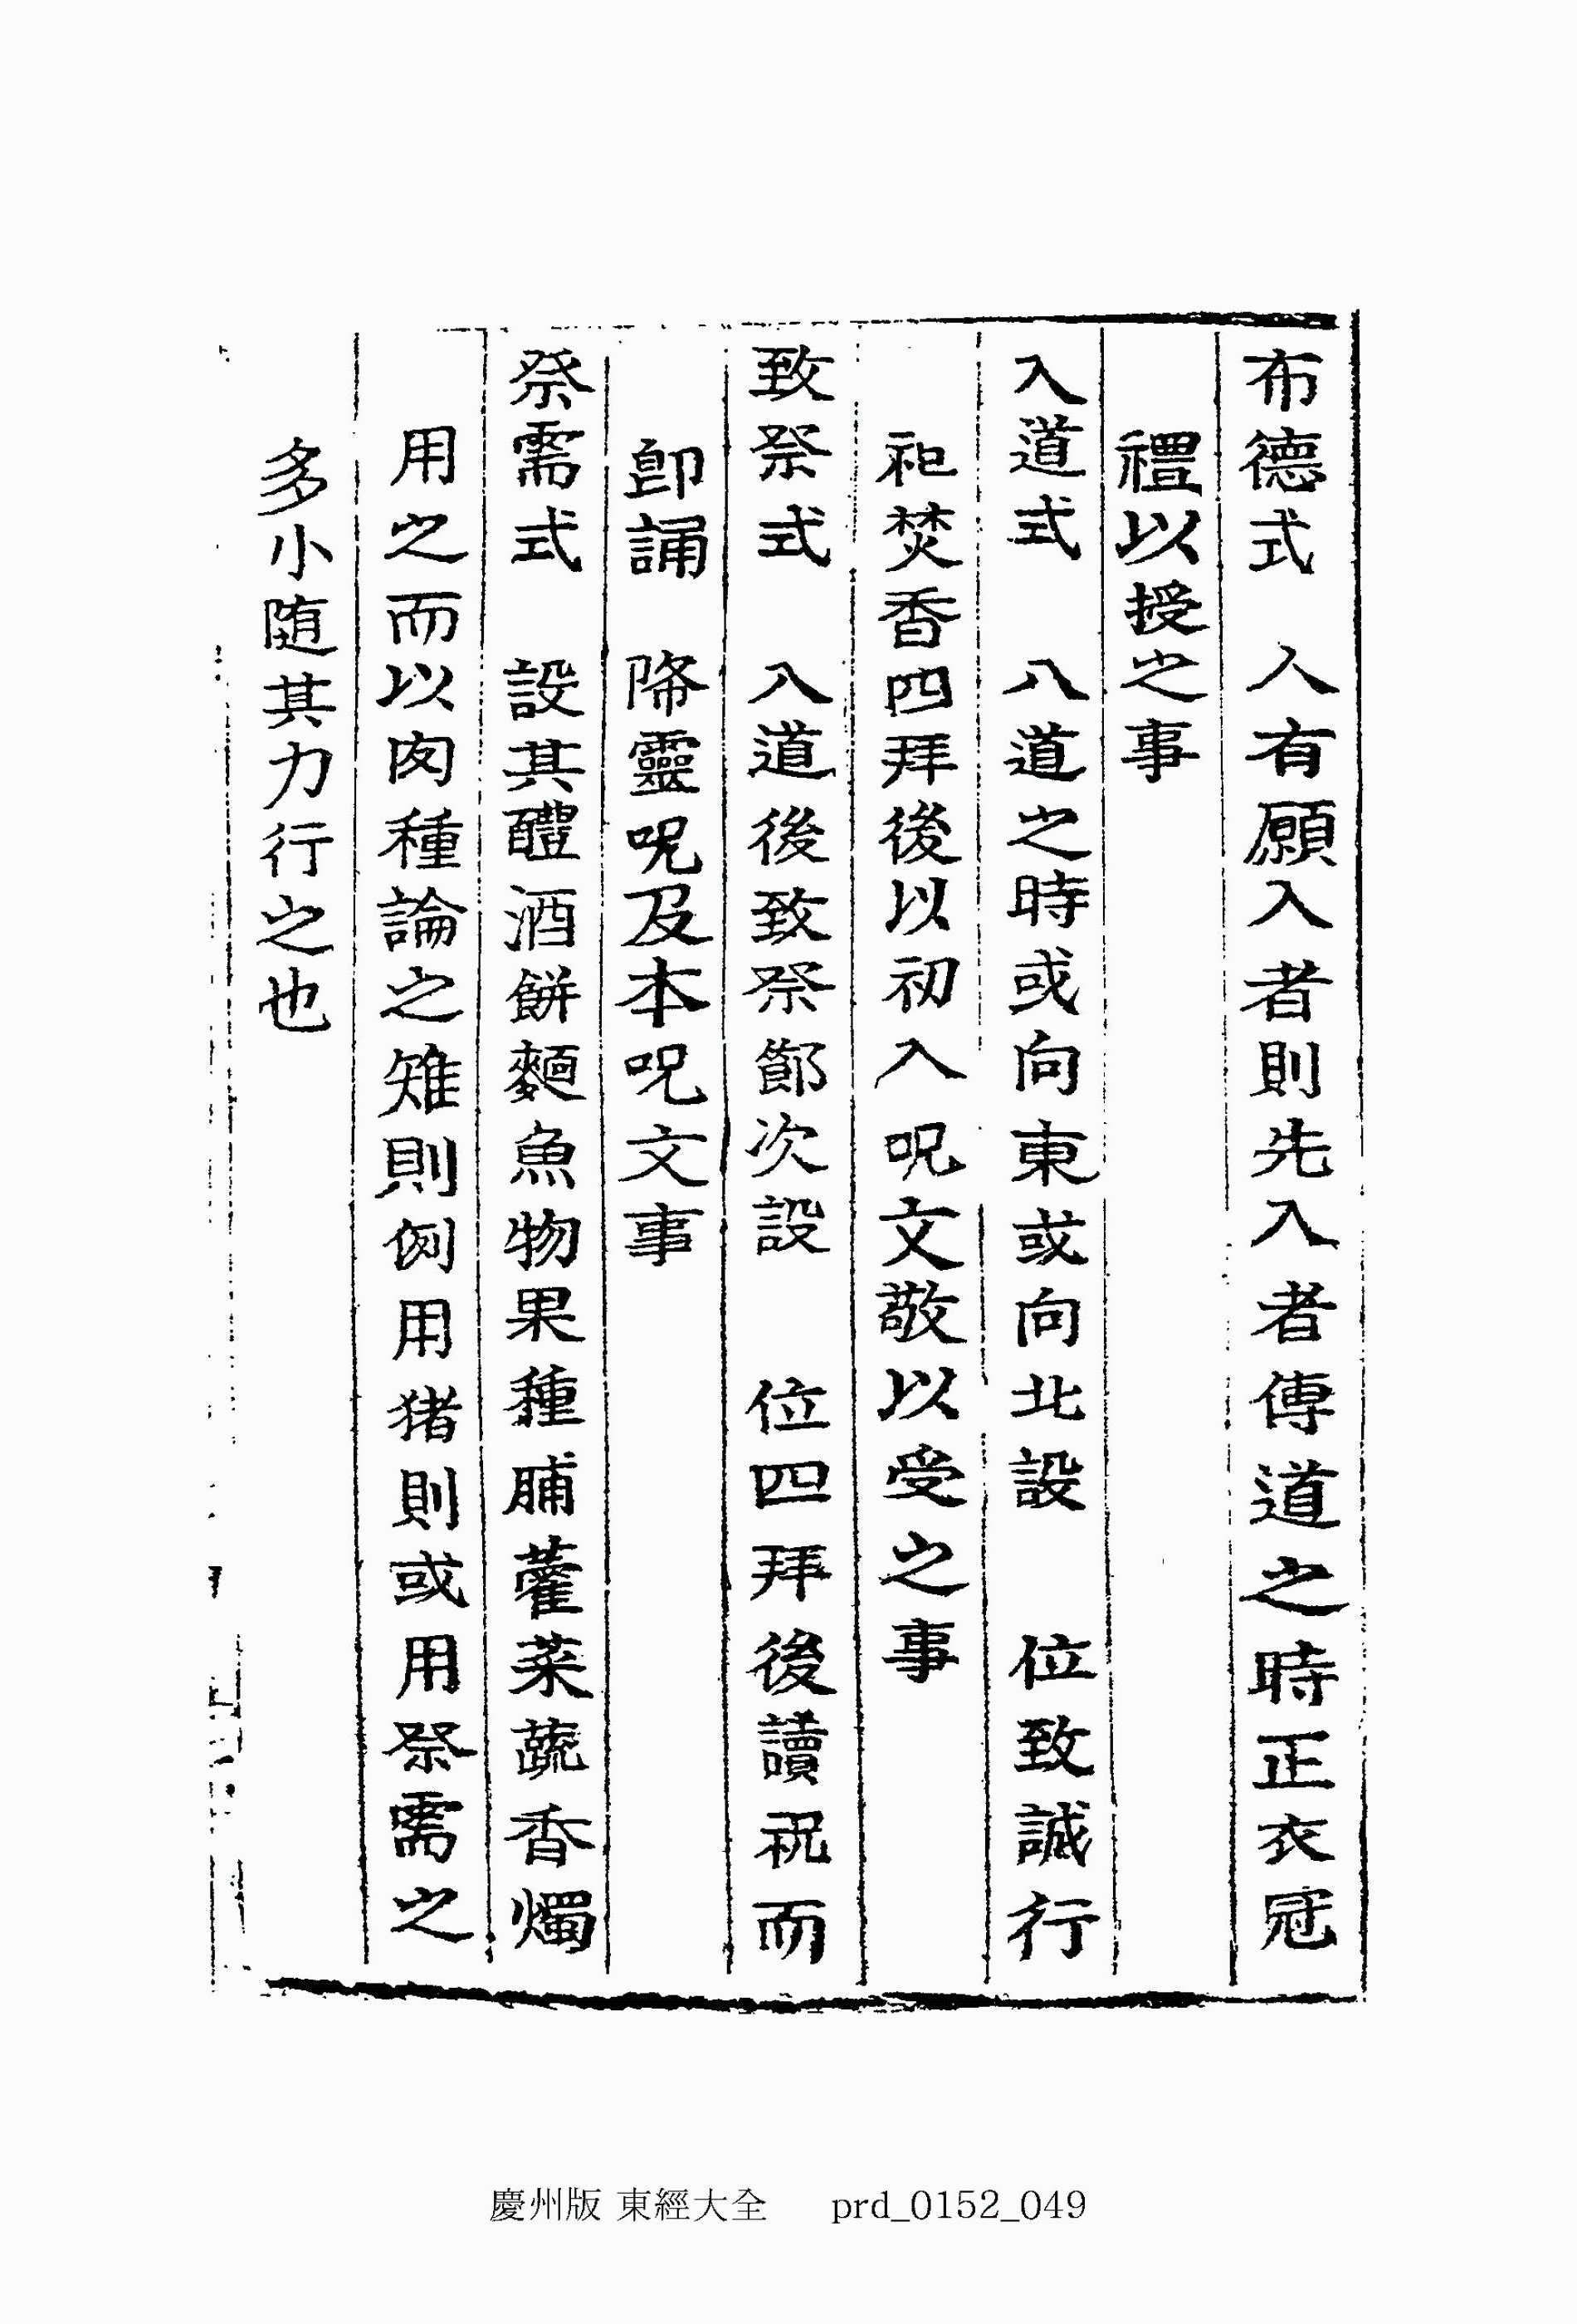 布德式 人有願入者則先入者傳道之時正衣冠
禮以授之事
入道式 入道之時或向東或向北設 位致誠行
祀焚香四拜後以初入呪文敬以受之事
致祭式 入道後致祭節次設 位四拜後讀祝而
卽誦 降靈呪及本呪文事
祭需式 設其醴酒餠麵魚物果種脯藿菜蔬香燭
用之而以肉種論之雉則例用猪則或用祭需之
多小随其力行之也
慶州版 東經大全 prd_0152_049